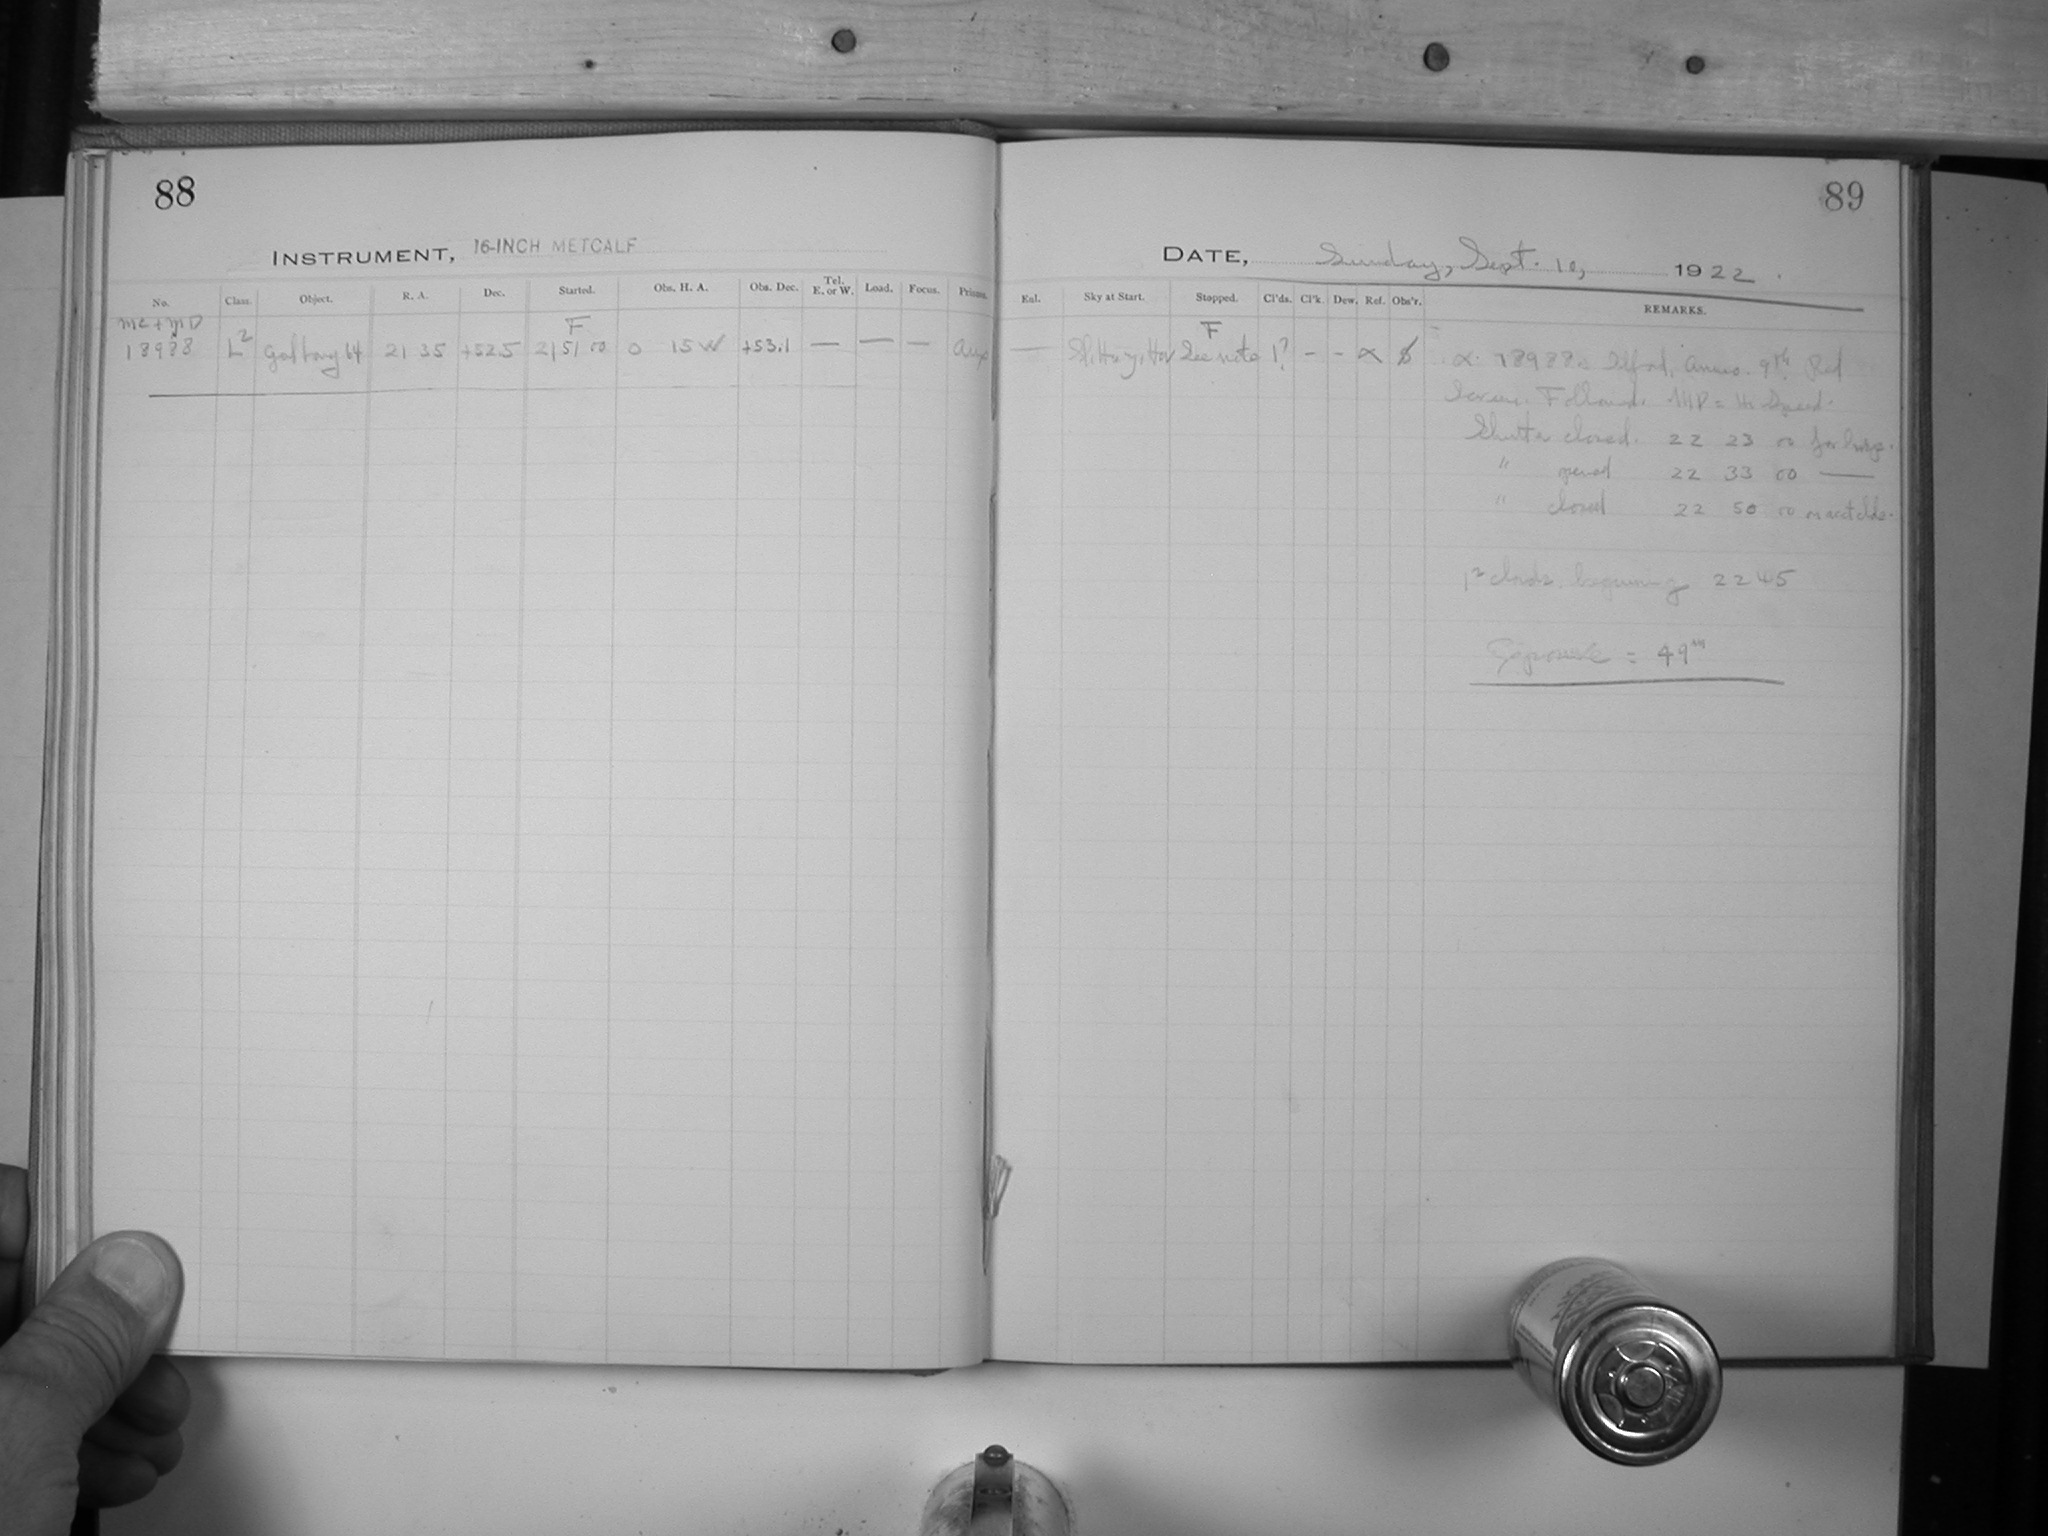 88
INSTRUMENT, 16-INCH METCALF
No. Class. Object. R. A. Dec. Started. Obs. H. A. Obs. Dec. Tel. E. or W. Load. Focus. Prisms.
MC + MD F
18988 L2 21 35 +52.5 21 51 00 0 15 W +53.1 — — —
89
DATE, Sunday, Sept. 10, 1922.
Exl. Sky at Start. Stopped. Cl'ds. Cl'k. Dew. Ref. Obs'r. REMARKS.
F
— See note 1? - - α
α. 18988 Ilford, 9th Red
Screen. Followed. MD = Hi Speed.
Shutter closed. 22 23 00 for
" opened 22 33 00 —
" closed 22 50 00 on acct clds.
1² clouds beginning 22 45
Exposure = 49m